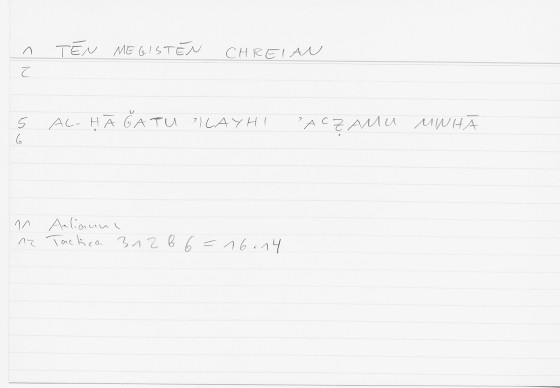 1 TĒN MEGISTĒN CHREIAN
2
5 AL-ḤĀǦATU ʾILAYHI ʾAʿẒAMU MINHĀ
6
11 Aelianus
12 Tactica 312 B 6 = 16.14